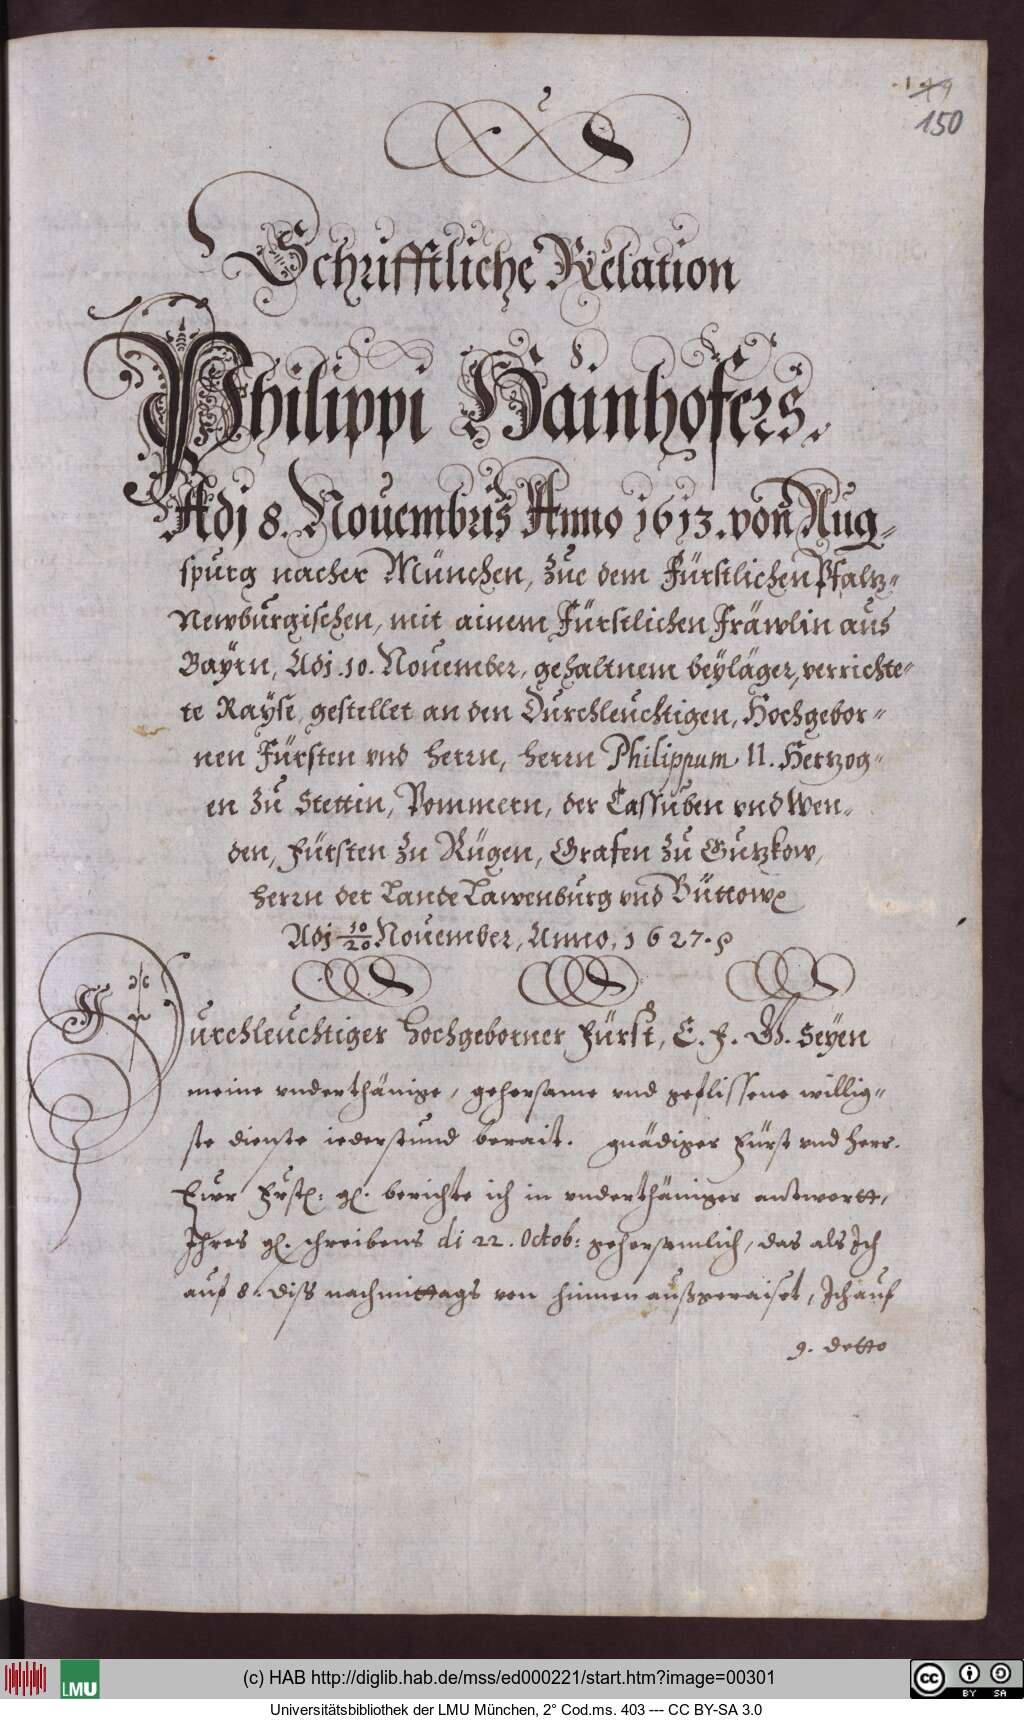 149
150
Schrifftliche Relation
Philippi Hainhofers.
Adj 8. Nouembris Anno 1613. von Aug-
spurg nacher München, zue dem Fürstlichen Pfaltz-
Newburgischen, mit ainem Fürstlichen Fräwlin aus
Bayrn, Adj. 10. Nouember, gehaltnem beyläger, verrichte-
te Rayse, gestellet an den Durchleuchtigen, Hochgebor-
nen Fürsten vnd herrn, herrn Philippum II. Hertzog-
en zu Stettin, Pommern, der Cassuben vnd Wen-
den, Fürsten zu Rügen, Grafen zu Gutzkow,
herrn der Lande Lawenburg vnd Büttow
Adj 10/20 Nouember, Anno, 1627.
Durchleuchtiger hochgeborner Fürst, E. F. G. seyen
meine vnderthänige, gehorsame vnd geflissene willig-
ste dienste iederstund berait. gnädiger Fürst vnd herr.
Ewr Frstl: gl. berichte ich in vnderthäniger antwortt,
Ihres gl. schreibens di 22. Octob: gehorsamlich, das als Ich
auf 8. diss nachmittags von hinnen außgeraiset, Ich auf
9. detto
(c) HAB http://diglib.hab.de/mss/ed000221/start.htm?image=00301
LMU
cc BY SA
Universitätsbibliothek der LMU München, 2° Cod.ms. 403 --- CC BY-SA 3.0